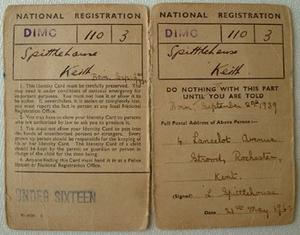 NATIONAL REGISTRATION
DIMC 110 3
Spittlehouse
Keith.
1. This Identity Card must be carefully preserved. You may need it under conditions of national emergency for important purposes. You must not lose it or allow it to be stolen. If, nevertheless, it is stolen or completely lost, you must report the fact in person at any local National Registration Office.
2. You may have to show your Identity Card to persons who are authorised by law to ask you to produce it.
3. You must not allow your Identity Card to pass into the hands of unauthorised persons or strangers. Every grown up person should be responsible for the keeping of his or her Identity Card. The Identity Card of a child should be kept by the parent or guardian or person in charge of the child for the time being.
4. Anyone finding this Card must hand it in at a Police Station or National Registration Office.
UNDER SIXTEEN
NATIONAL REGISTRATION
DIMC 110 3
Spittlehouse
Keith.
DO NOTHING WITH THIS PART
UNTIL YOU ARE TOLD
Born September 2nd 1939
Full Postal Address of Above Person:—
4 Lancelot Avenue
Strood, Rochester,
Kent.
(Signed) L Spittlehouse
Date 21st May